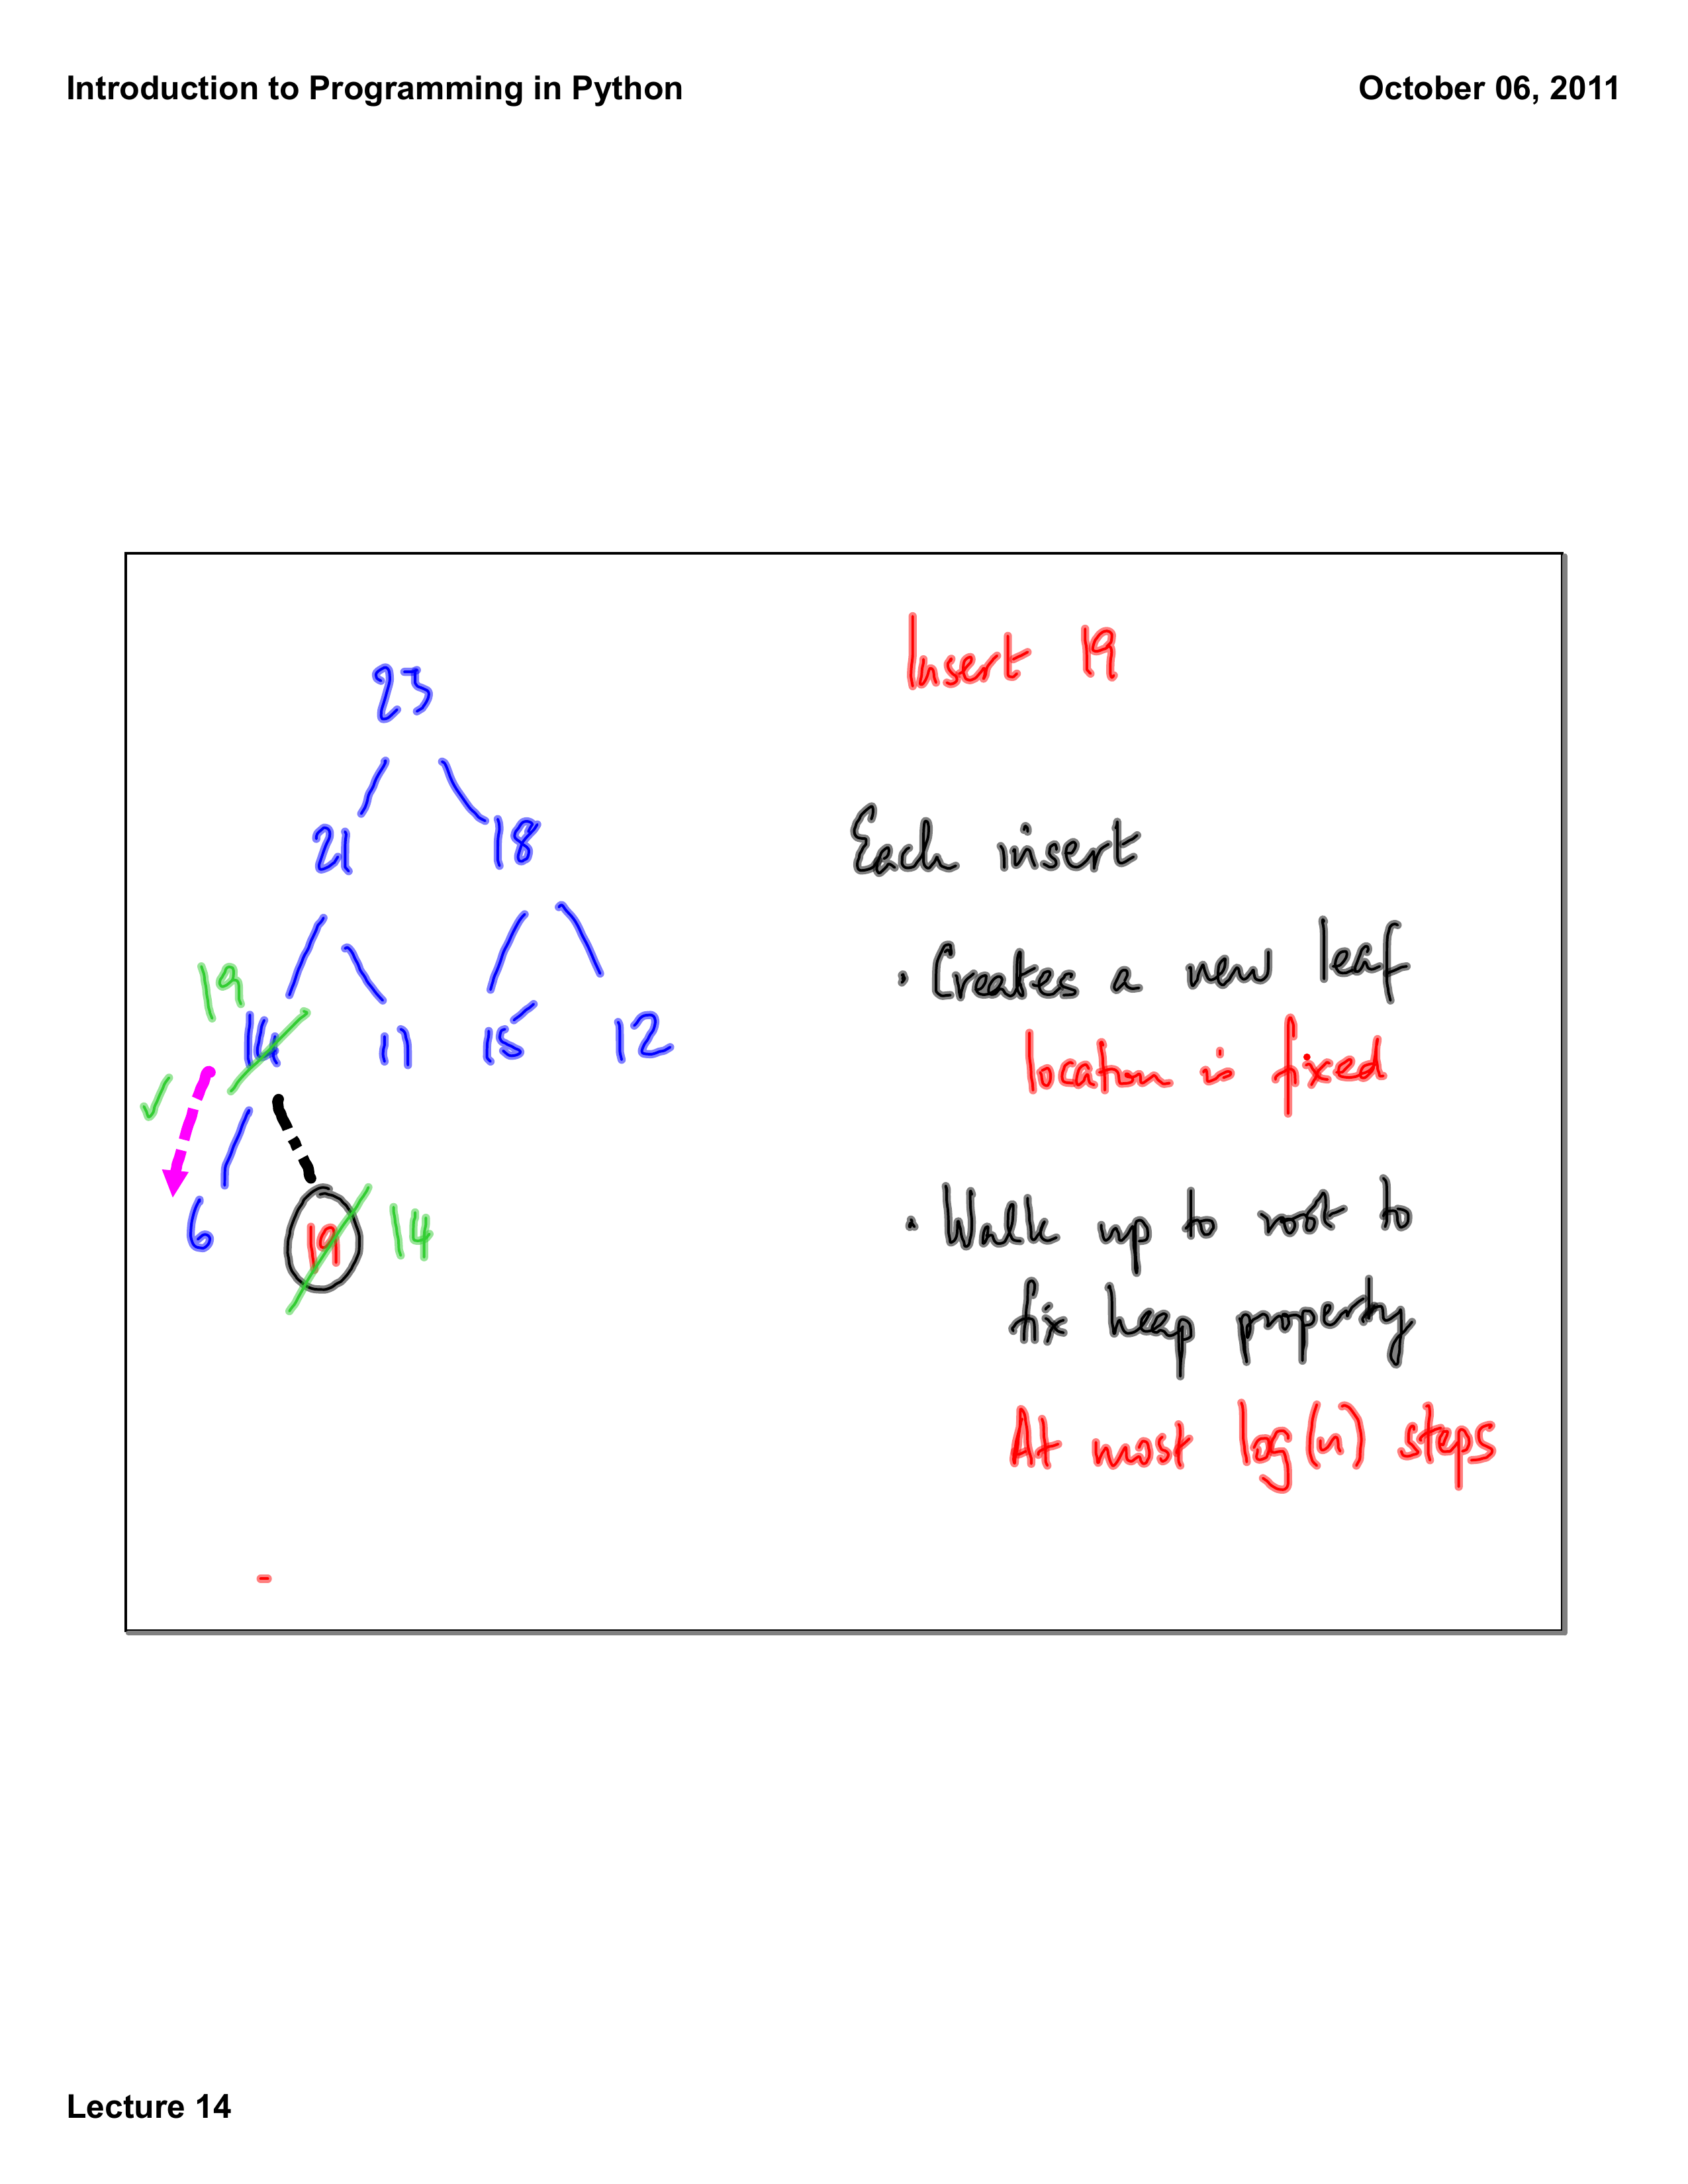 Introduction to Programming in Python October 06, 2011
Insert 19
23
21 18
Each insert
19
14 11 15 12
• Creates a new leaf
location is fixed
6 19 14
• Walk up to root to
fix heap property
At most log(n) steps
Lecture 14